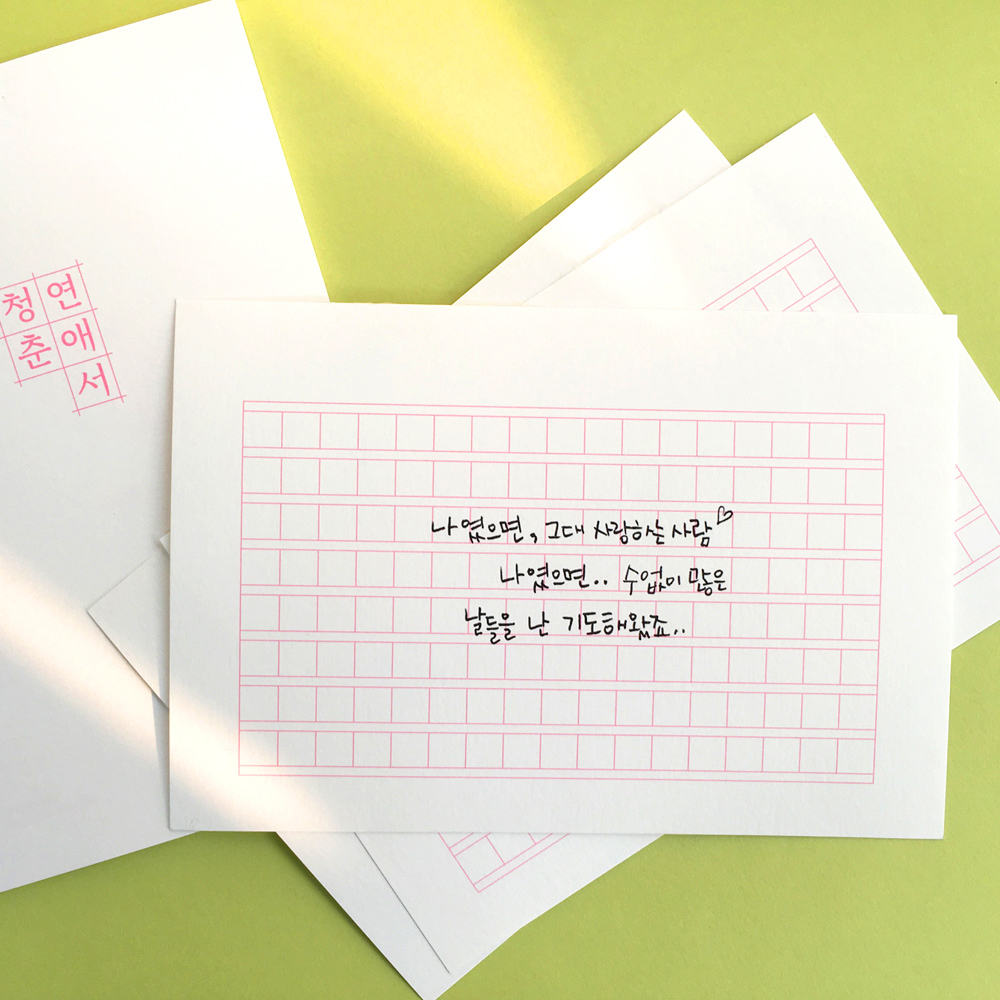 청춘
연애서
나였으면, 그대 사랑하는 사람♡
나였으면.. 수없이 많은
날들을 난 기도해왔죠..